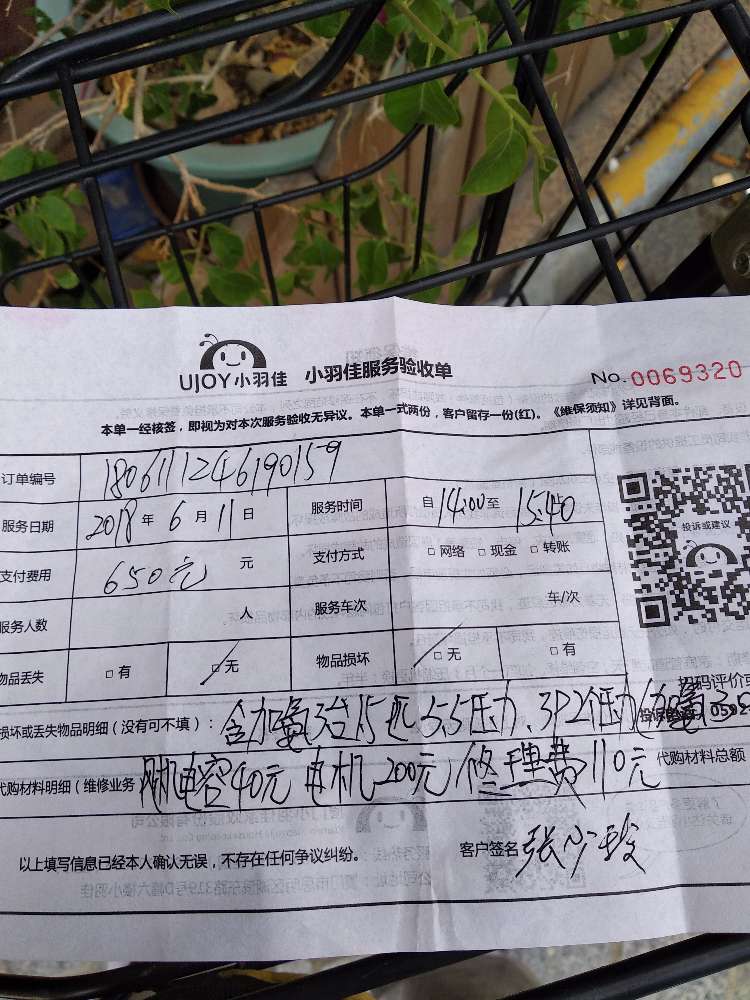 UJOY小羽佳 小羽佳服务验收单 No.0069320
本单一经核签，即视为对本次服务验收无异议。本单一式两份，客户留存一份(红)。《维保须知》详见背面。
订单编号 1806111246190159
服务日期 2018 年 6 月 11 日 服务时间 自 14:00 至 15:40
投诉或建议
支付费用 650元 元 支付方式 □ 网络 □ 现金 □ 转账
服务人数 人 服务车次 车/次
物品丢失 □ 有 □ 无 物品损坏 □ 无 □ 有
扫码评价或
损坏或丢失物品明细（没有可不填）： 含加氨3台1.5匹 5.5压力、3P2个压力加氨
代购材料明细（维修业务 风机电容40元 电机200元 修理费110元 代购材料总额
以上填写信息已经本人确认无误，不存在任何争议纠纷。 客户签名